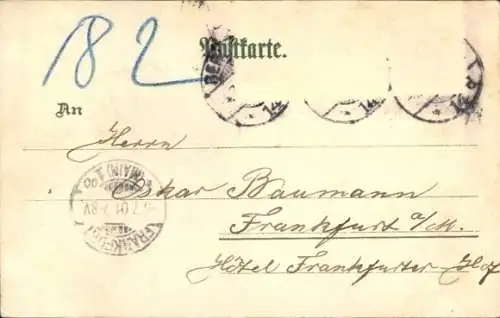 82
Postkarte.
An
Herrn
Oskar Baumann
Frankfurt a/M.
Hôtel Frankfurter Hof
FRANKFURT
(MAIN) 1